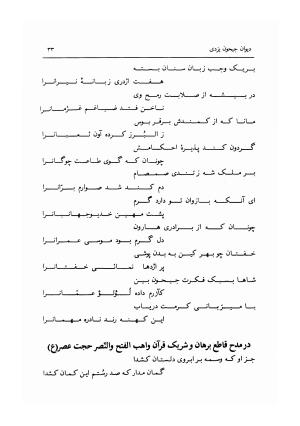 دیوان جیحون یزدی
۳۳
بریک وجب زبان سنان بسته
هفت اژدری زبانهٔ نیرانرا
در بیشه از صلابت رمح وی
ناخن فتد ضیاغم غژمانرا
مانا که از کمندش برقر بوس
ز البرز کرده آون ثعبانرا
گردون کند پذیرهٔ احکامش
چونان که گوی طاعت چوگانرا
بر ملک شه ز تندی صمصام
دم کند شد صوارم برّانرا
ای آنکه بازوان تو دارد گرم
پشت مهین خدیوجهانبانرا
چونان که از برادری هارون
دل گرم بود موسی عمرانرا
خفتان چو بهر کین به بدن پوشی
پر اژدها نمائی خفتانرا
شاها بسبک فکرت جیحون بین
کآزرم داده لؤلؤ عمّانرا
با میزبانی کرمت دریاب
این کهنه رند نادره مهمانرا
در مدح قاطع برهان و شریک قرآن واهب الفتح والنّصر حجت عصر(ع)
جز او که وسمه بر ابروی دلستان کشدا
گمان مدار که صد رستم این کمان کشدا